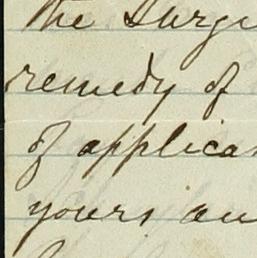 the Surge
remedy of
of applica
yours an